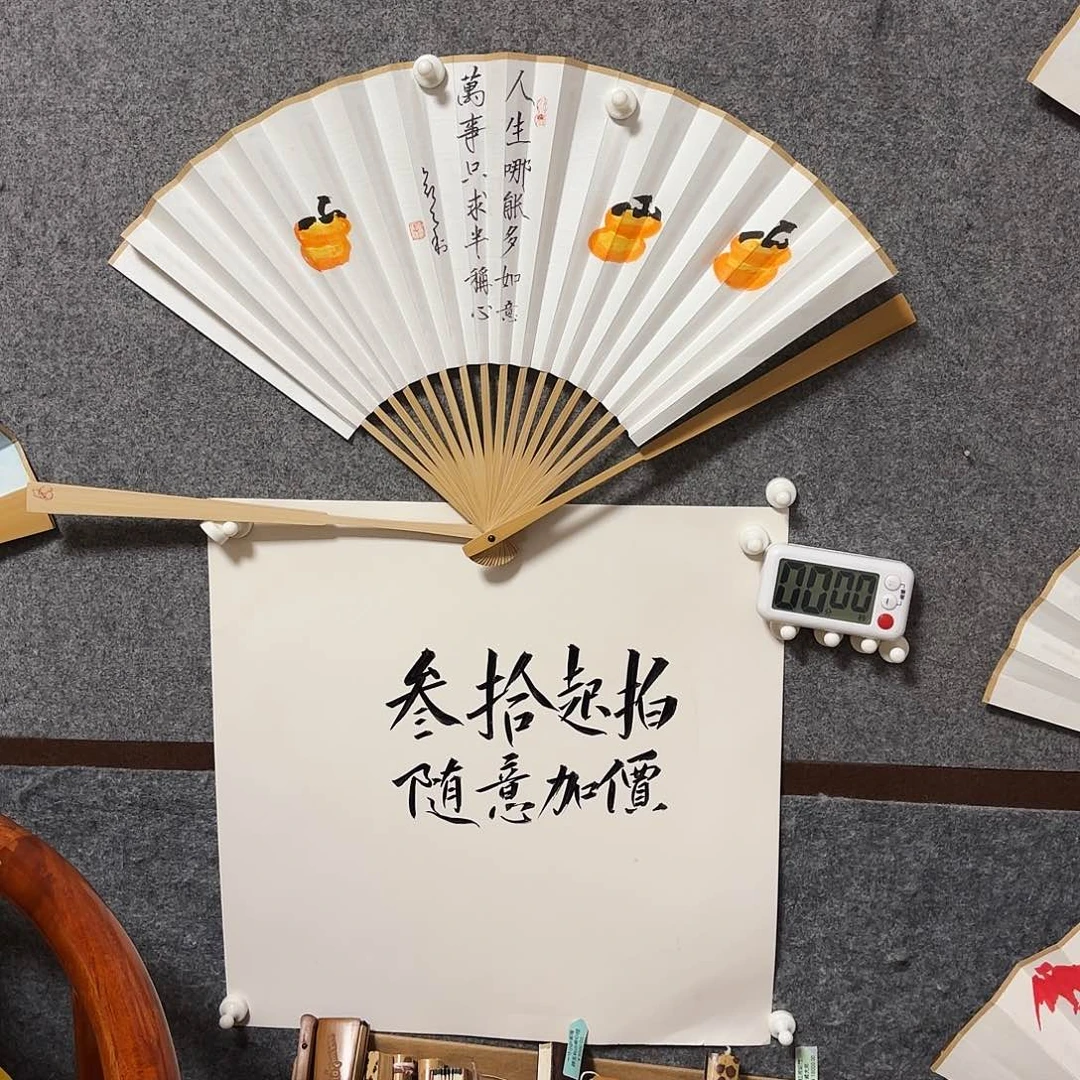 人生哪能多如意
萬事只求半稱心
00 00
叁拾起拍
随意加價